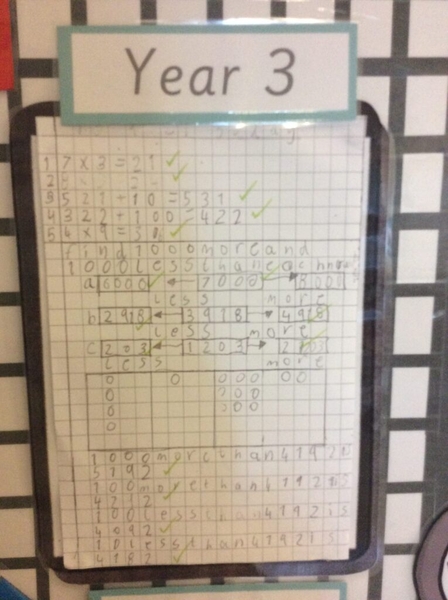 Year 3
1 7 x 3 = 21
2
3 521 + 10 = 531
4 322 + 100 = 422
5 4 x 9 =
find 1000 more and
1000 less than each
a 6000 7000 8000
less more
b 2918 3918 4918
less more
c 203 1203
less more
0 0 000 00
0 000
0 000
0
1000 more than 4192 is
5192
100 more than 4192 is
4292
100 less than 4192 is
4092
10 less than 4192 is
4182